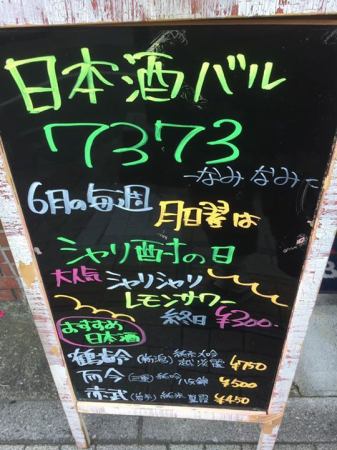 日本酒バル
7373
なみなみに
6月の毎週
月曜は
シャリ酎の日
大人気 シャリシャリ
レモンサワー
終日 ¥300-
おすすめ
日本酒
鶴齢 (新潟) 純米吟 越淡麗 ¥750
而今 (三重) 純吟 八反錦 ¥500
(岩手) 純米 夏霞 ¥450